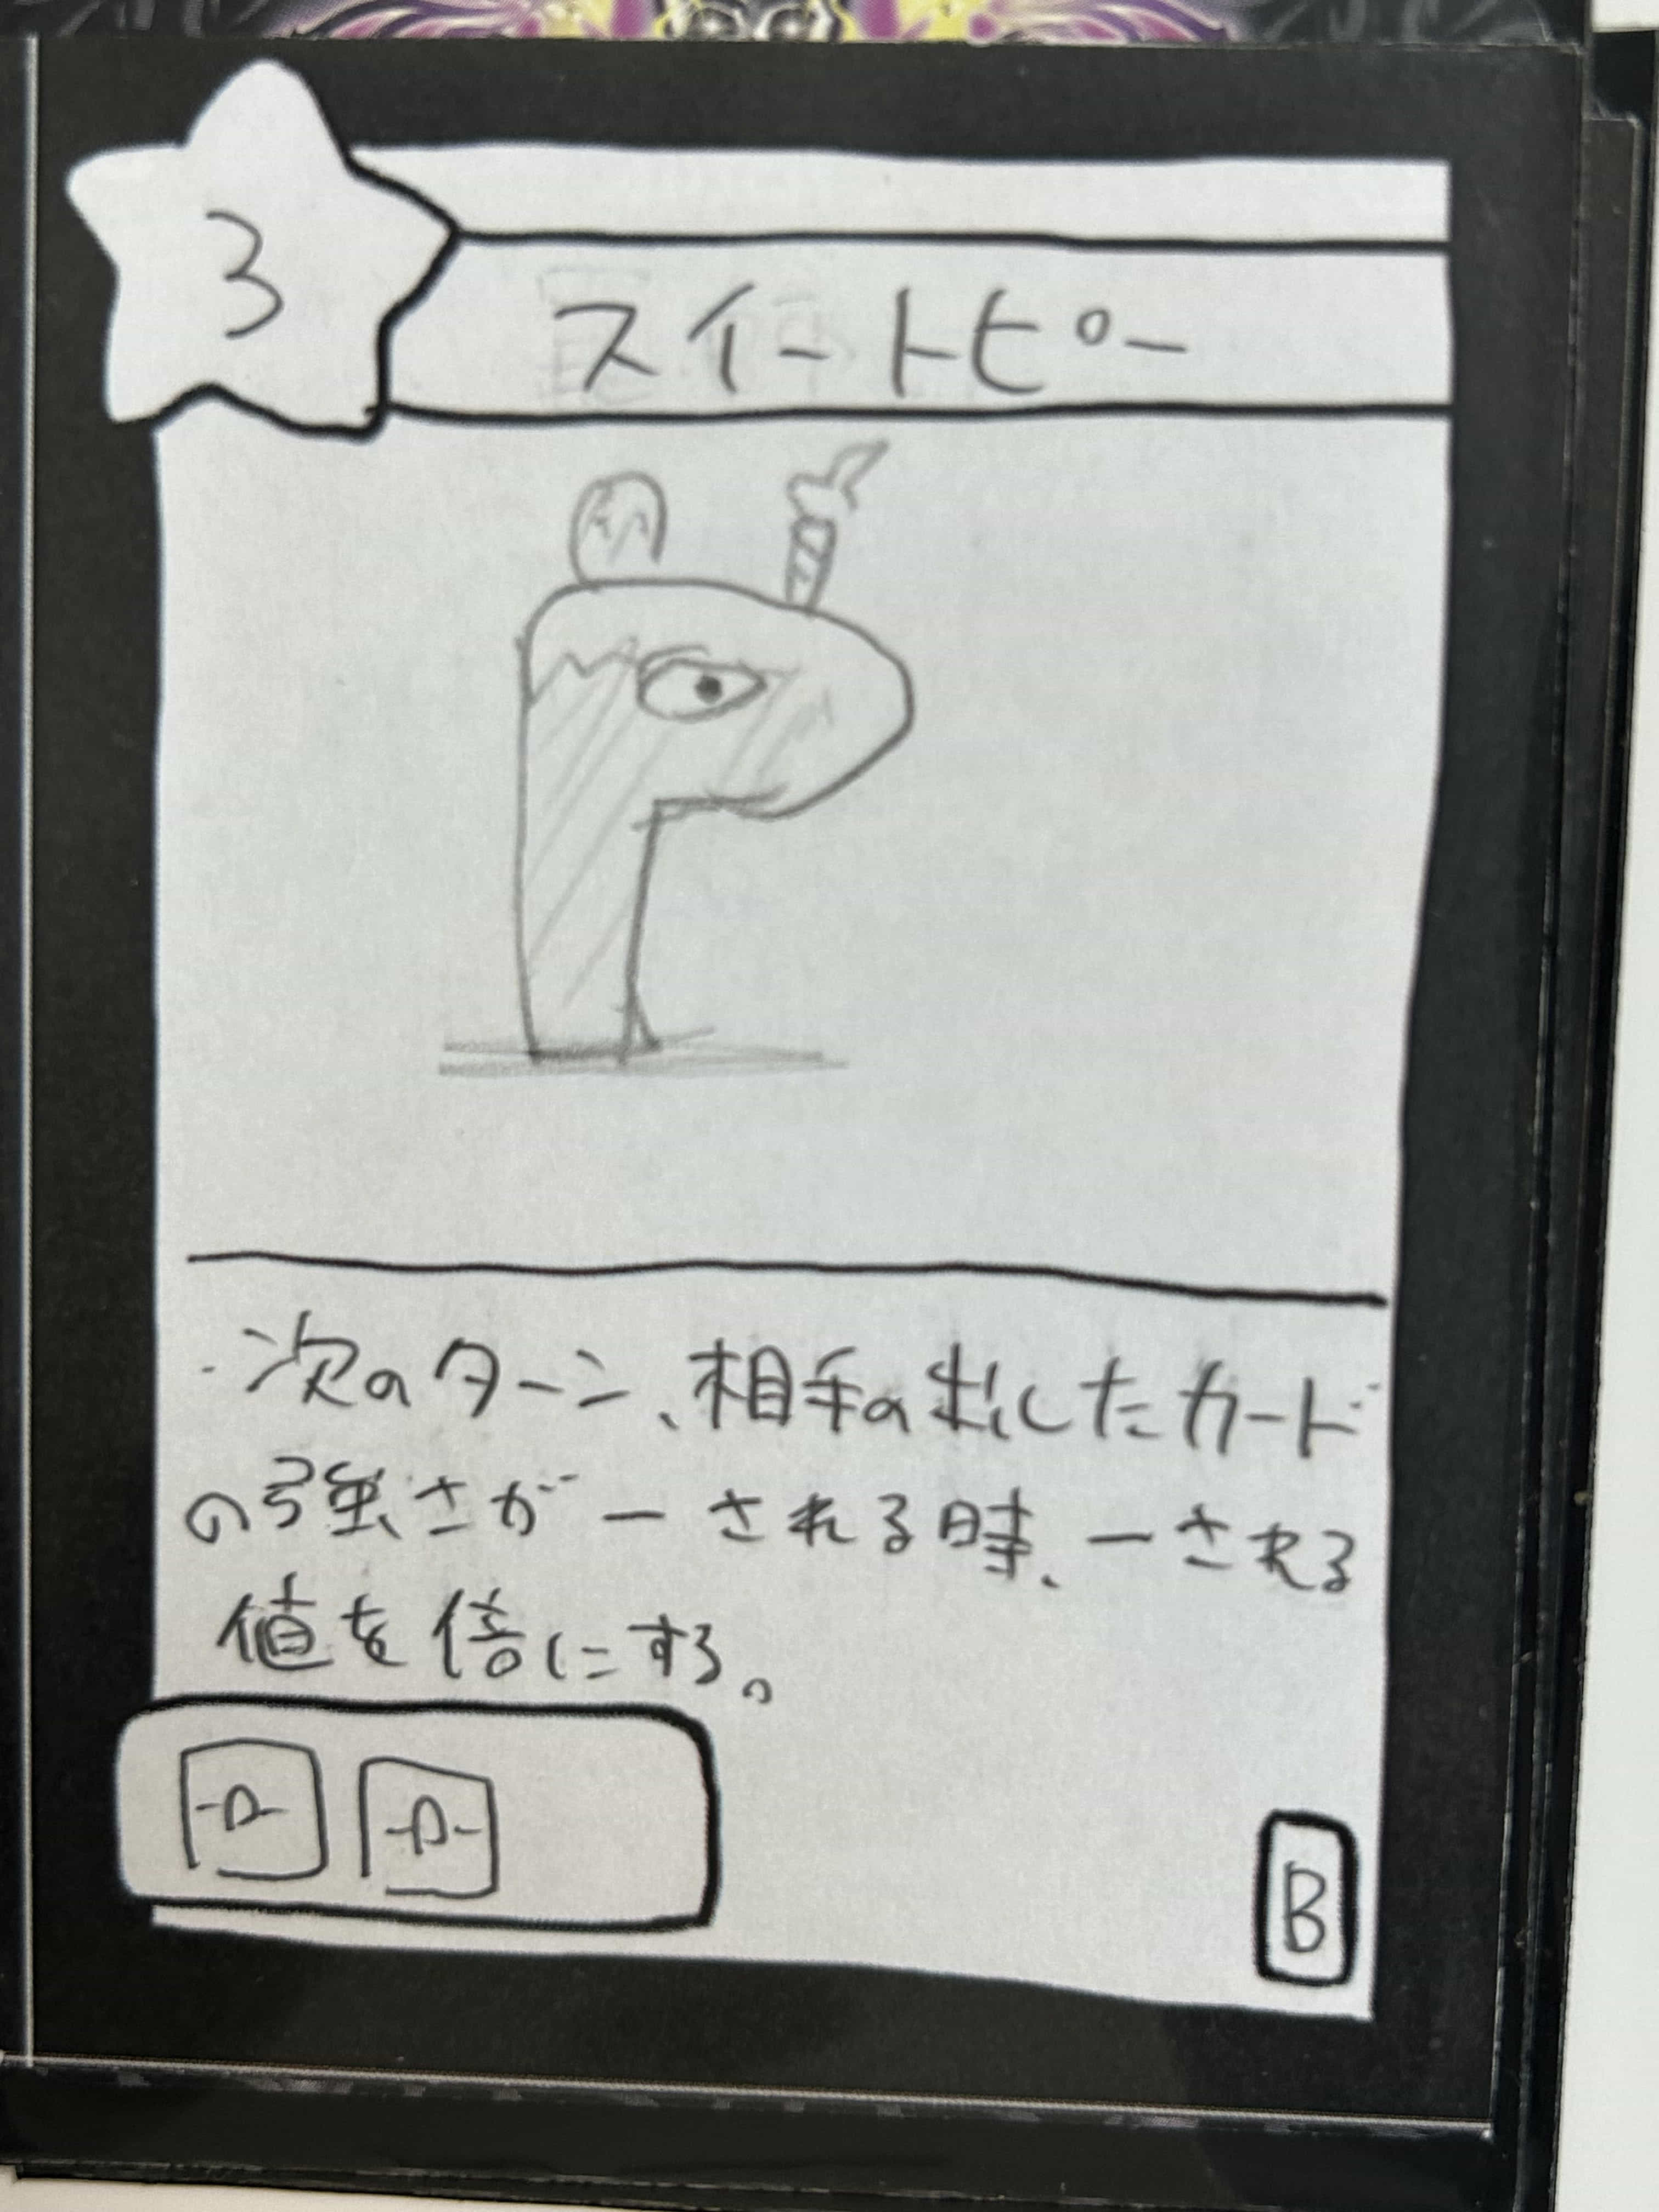 3
スイートピー
・次のターン、相手の出したカード
の強さがーされる時、ーされる
値を倍にする。
B